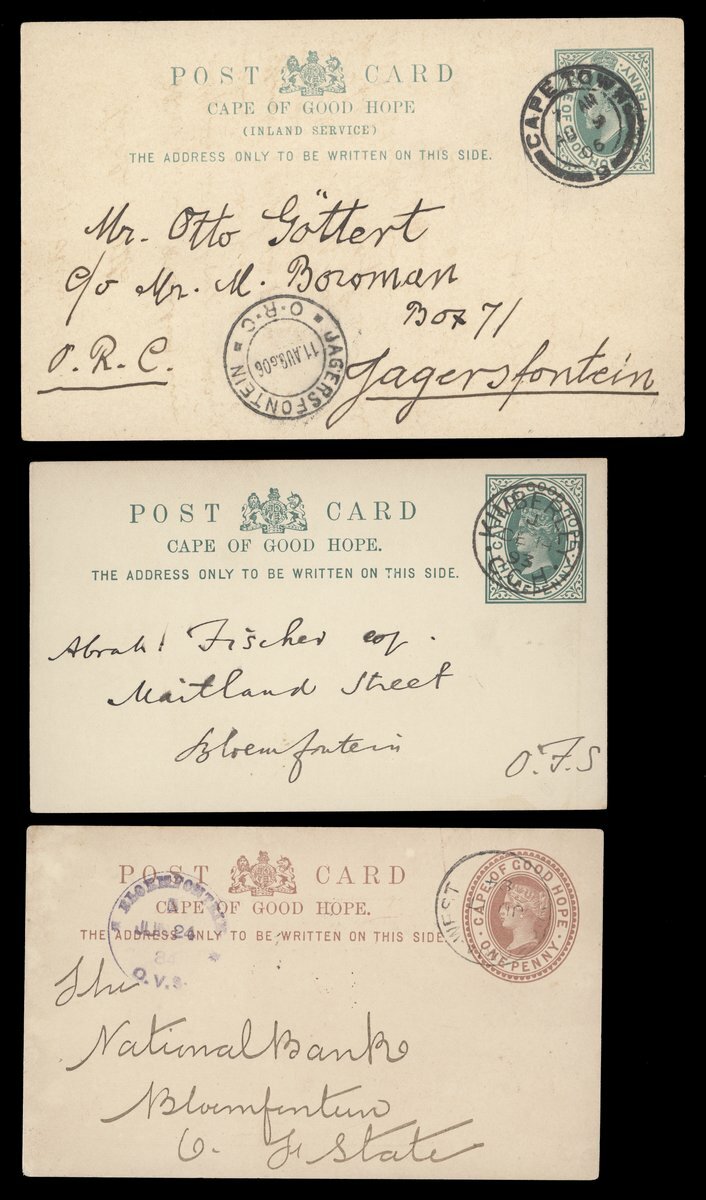 POST CARD
CAPE OF GOOD HOPE
(INLAND SERVICE)
THE ADDRESS ONLY TO BE WRITTEN ON THIS SIDE.
CAPE TOWN
Mr. Otto Göttert
c/o Mr. M. Boroman
Box 71
O.R.C.
Jagersfontein
JAGERSFONTEIN
O.R.C
11.AUG.06
POST CARD
CAPE OF GOOD HOPE.
THE ADDRESS ONLY TO BE WRITTEN ON THIS SIDE.
KIMBERLEY
93
Abrah! Fischer esq.
Maitland Street
Bloemfontein
O.F.S
POST CARD
CAPE OF GOOD HOPE.
THE ADDRESS ONLY TO BE WRITTEN ON THIS SIDE.
CAPE OF GOOD HOPE
ONE PENNY
WEST
BLOEMFONTEIN
24
O.V.S.
The
National Bank
Bloemfontein
O. F State